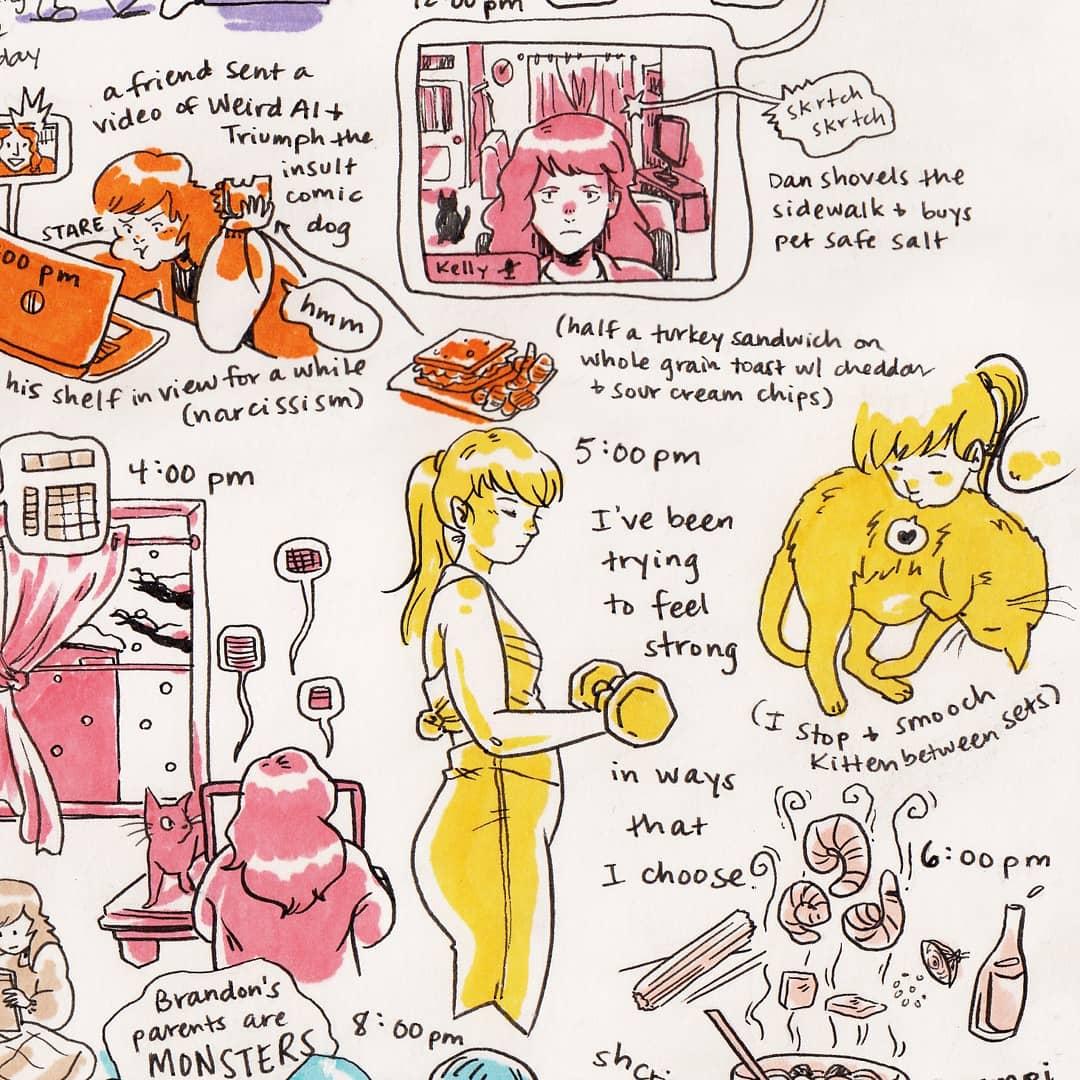 12:00 pm
day
a friend sent a
video of Weird Al +
Triumph the
insult
comic
dog
STARE
:00 pm
hmm
his shelf in view for a while
(narcissism)
Kelly
skrtch
skrtch
Dan shovels the
sidewalk + buys
pet safe salt
(half a turkey sandwich on
whole grain toast w/ cheddar
+ sour cream chips)
4:00 pm
5:00 pm
I've been
trying
to feel
strong
in ways
that
I choose
(I stop + smooch
Kitten between sets)
6:00 pm
Brandon's
parents are
MONSTERS
8:00 pm